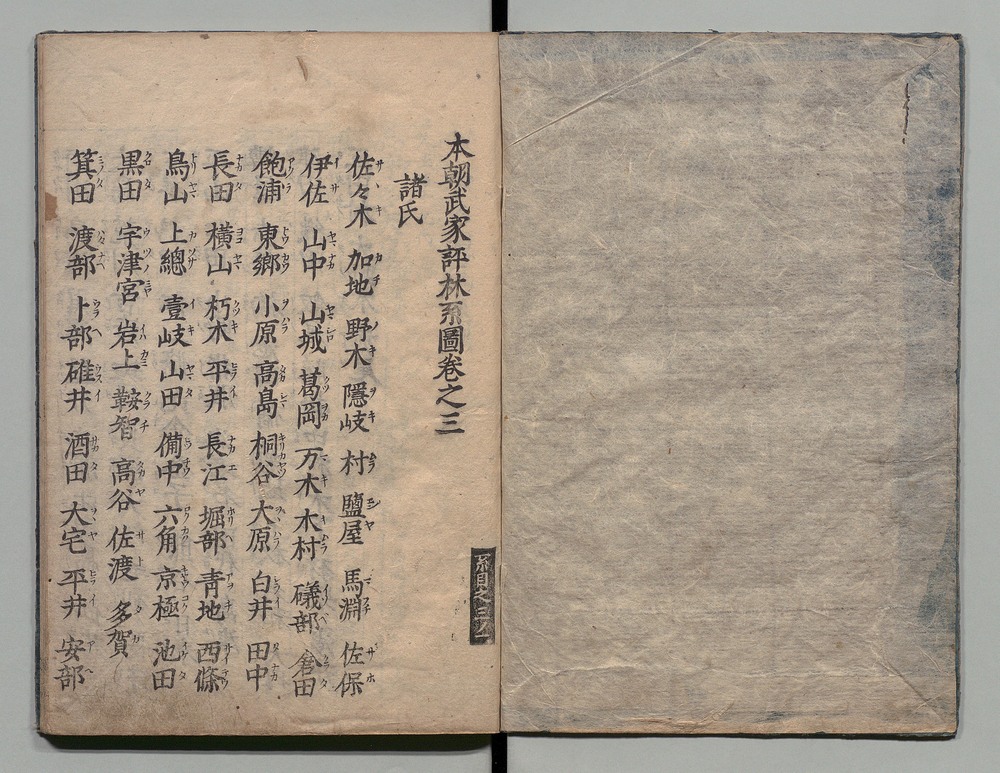 本朝武家評林系圖卷之三
諸氏
佐々木 加地 野木 隱岐 村 鹽屋 馬淵 佐保
伊佐 山中 山城 葛岡 万木 木村 礒部 倉田
飽浦 東郷 小原 高島 桐谷 大原 白井 田中
長田 横山 朽木 平井 長江 堀部 青地 西條
鳥山 上總 壹岐 山田 備中 六角 京極 池田
黒田 宇津宮 岩上 鞍智 高谷 佐渡 多賀
箕田 渡部 卜部 碓井 酒田 大宅 平井 安部
系目之三